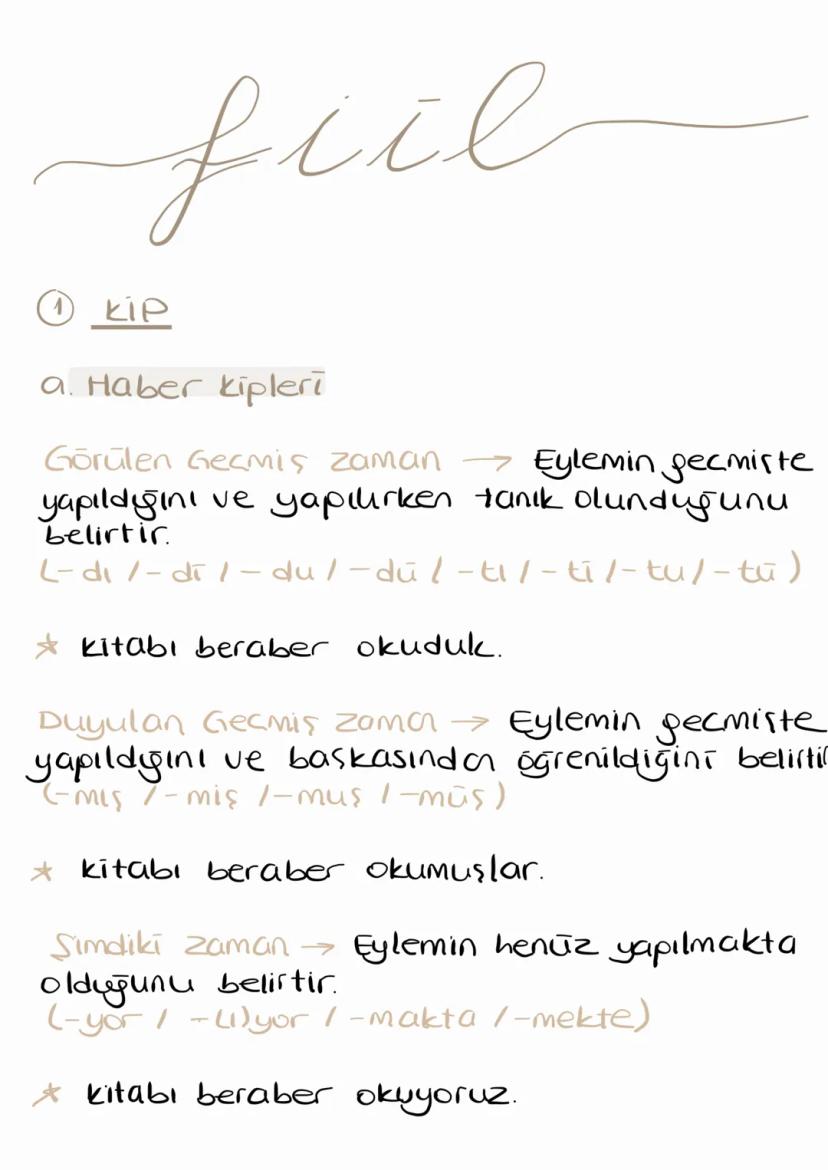 fiil
1 KİP
a. Haber kipleri
Görülen Geçmiş zaman → Eylemin geçmişte
yapıldığını ve yapılırken tanık olunduğunu
belirtir.
(-dı /-di /-du /-dü / -tı /-ti /-tu /-tü)
* kitabı beraber okuduk.
Duyulan Geçmiş zaman → Eylemin geçmişte
yapıldığını ve başkasından öğrenildiğini belirtir
(-mış /-miş /-muş /-müş)
* kitabı beraber okumuşlar.
Şimdiki zaman → Eylemin henüz yapılmakta
olduğunu belirtir.
(-yor / -(ı)yor / -makta /-mekte)
* kitabı beraber okuyoruz.